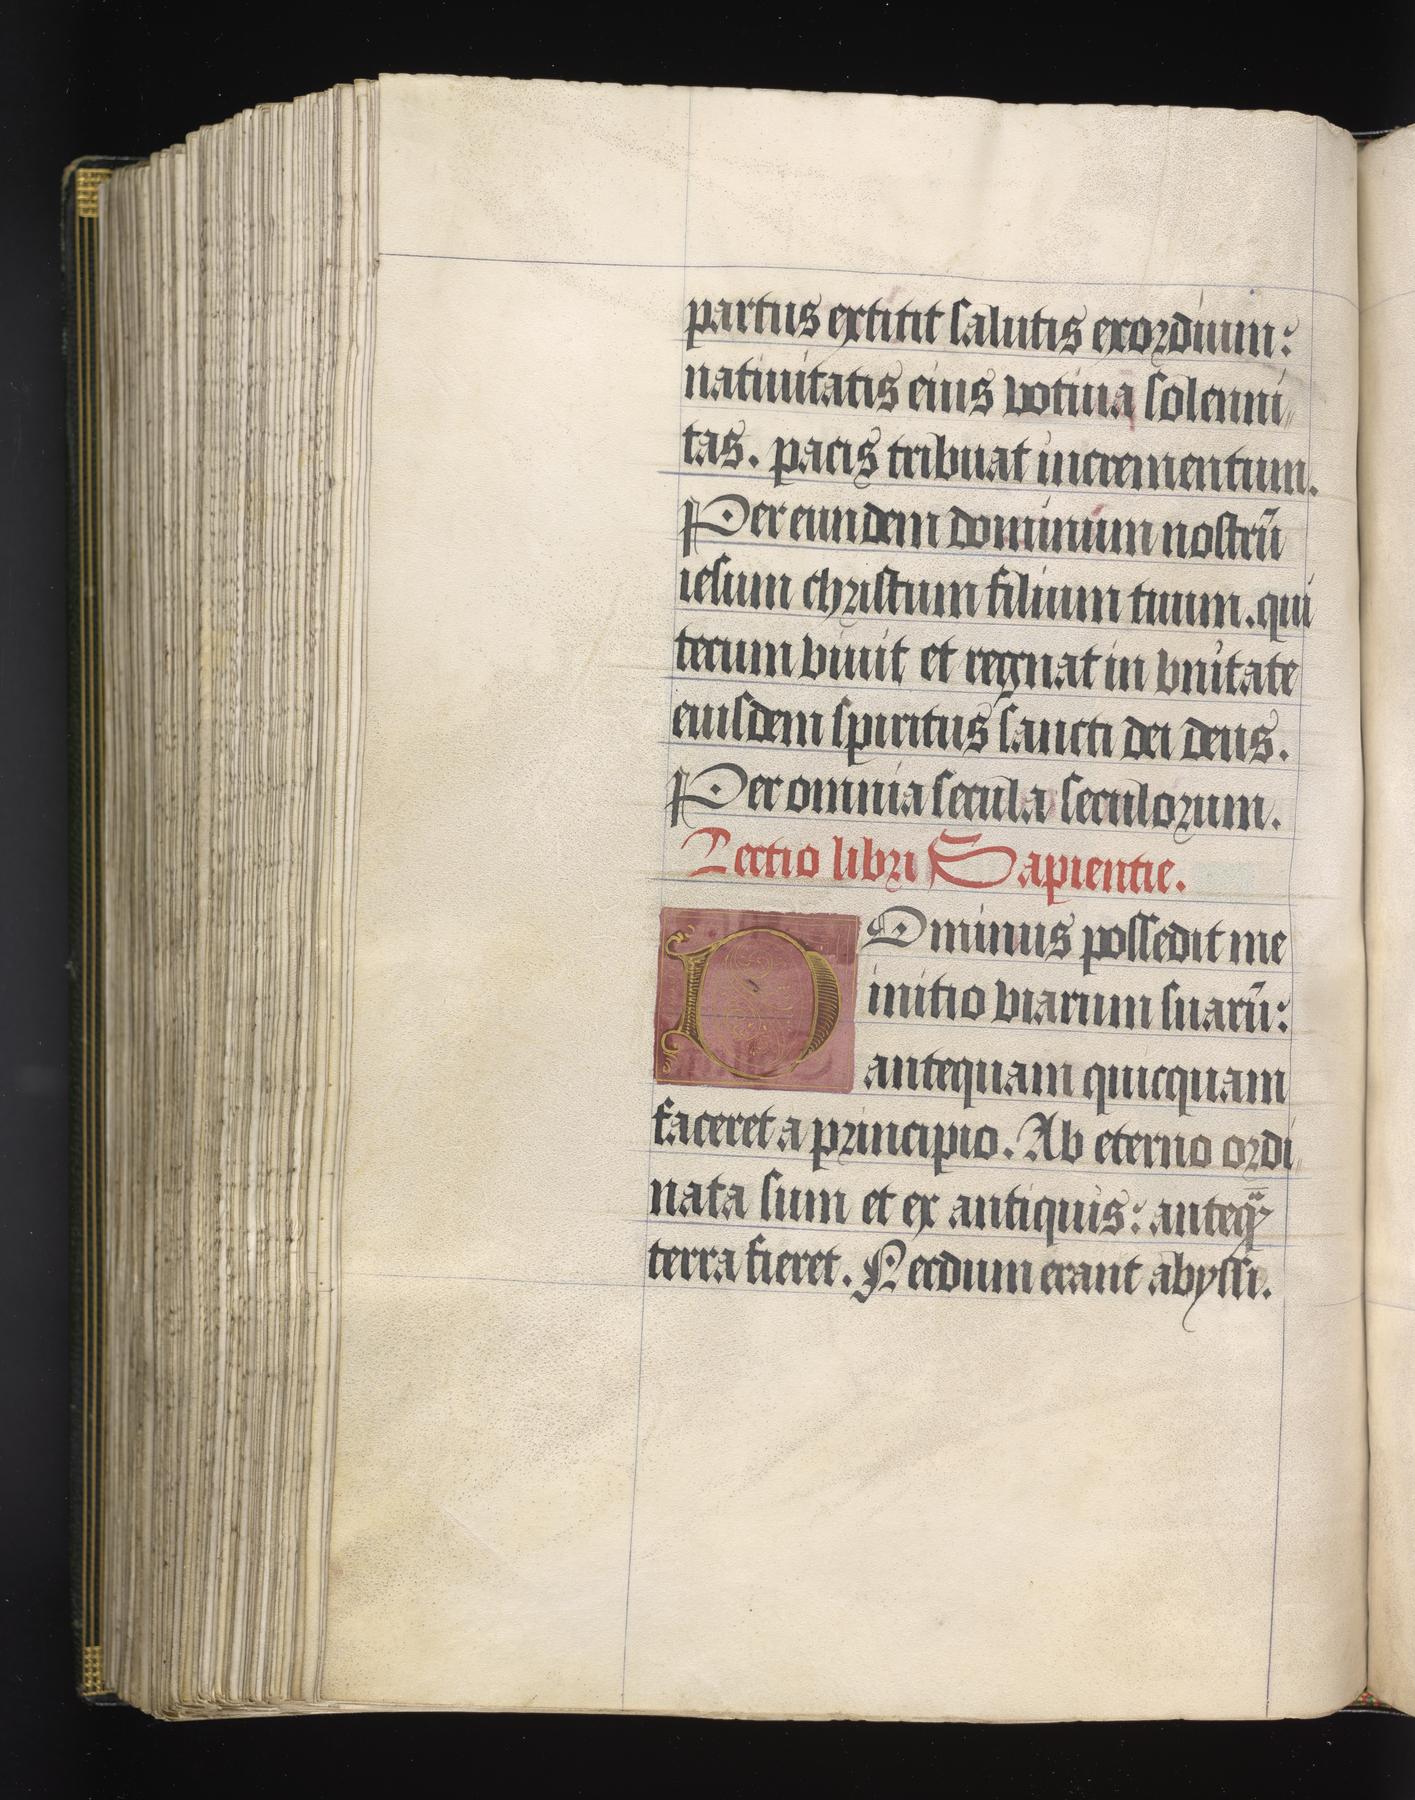 partus extitit salutis exordium:
natiuitatis eius votiua solenni
tas. pacis tribuat incrementum.
Per eundem dominum nostrū
iesum christum filium tuum. qui
tecum viuit et regnat in vnitate
eiusdem spiritus sancti dei deus.
Per omnia secula seculorum.
Lectio libri Sapientie.
DOminus possedit me
initio viarum suarū:
antequam quicquam
faceret a principio. Ab eterno ordi
nata sum et ex antiquis: anteq̄
terra fieret. Necdum erant abyssi.